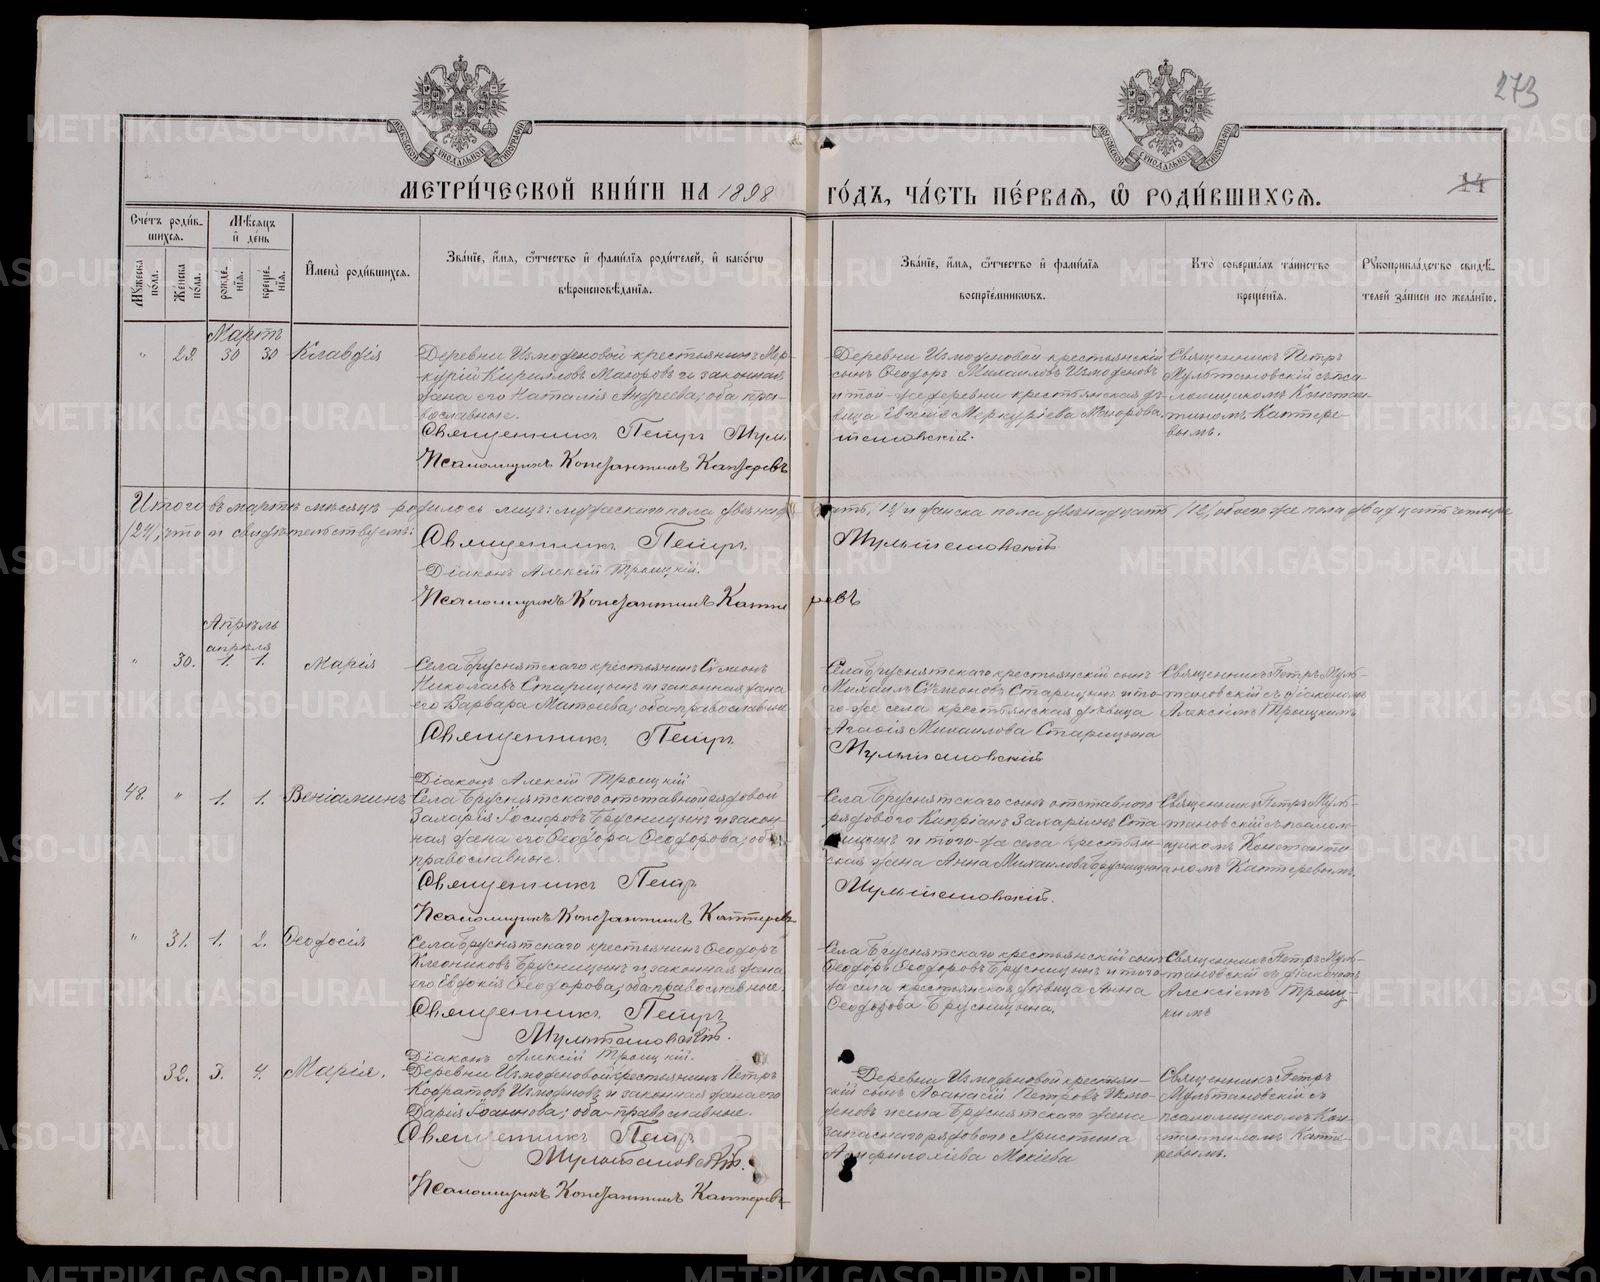 273
МОСКОВСКОЙ СѴНОДАЛЬНОЙ ТИПОГРАФІИ
МОСКОВСКОЙ СѴНОДАЛЬНОЙ ТИПОГРАФІИ
МЕТРИ́ЧЕСКОЙ КНИ́ГИ НА 1898 ГО́ДЪ, ЧА́СТЬ ПЕ́РВАЯ, Ѡ РОДИ́ВШИХСЯ.
14
Сче́тъ роди́в-
шихся.
Мѣ́сяцъ
и де́нь
Мꙋ́жеска по́ла.
Же́нска по́ла.
рожде́-нїя.
креще́-нїя.
И҆мена̀ роди́вшихся.
Зва́нїе, и҆́мя, ѻ҆́тчество и҆ фами́лїя роди́телей, и҆ како́гѡ
вѣроисповѣ́данїя.
Зва́нїе, и҆́мя, ѻ҆́тчество и҆ фами́лїя
воспрїе́мникѡвъ.
Кто̀ соверша́лъ та́инство
креще́нїя.
Рꙋкоприкла́дство свидѣ́-
телей за́писи по жела́нїю.
Мартъ
" 29. 30 30 Клавдія
Деревни Измоденовой крестьянинъ Мер-
курій Кирилловъ Магоровъ и законная
жена его Наталія Андреева; оба пра-
вославные.
Священникъ Петръ Муль
тановскій.
Псаломщикъ Константинъ Каптеревъ
Деревни Измоденовой крестьянскій
сынъ Ѳеодоръ Михаиловъ Измоденовъ
и той-же деревни крестьянская дѣ-
вица Евгенія Меркуріева Магорова.
Священникъ Петръ
Мультановскій съ пса-
ломщикомъ Констан-
тиномъ Каптере-
вымъ.
Итого въ мартѣ мѣсяцѣ родилось лицъ: мужескаго пола двѣнадцать, 12, и женска пола двѣнадцать /12/ обоего же пола двадцать четыре
/24/, что и свидѣтельствуемъ:
Священникъ Петръ Мультановскій
Діаконъ Алексій Троицкій.
Псаломщикъ Константинъ Каптеревъ
Апрѣль
апрѣля
" 30. 1. 1. Марія
Села Бруснятскаго крестьянинъ Сѵмеонъ
Николаевъ Старицынъ и законная жена
его Варвара Матѳеева; оба православные
Священникъ Петръ Мультановскій
Діаконъ Алексій Троицкій
Села Бруснятскаго крестьянскій сынъ
Михаилъ Сѵмеоновъ Старицынъ и то-
го-же села крестьянская дѣвица
Агафія Михаилова Старицына
Священникъ Петръ Муль-
тановскій съ діакономъ
Алексіемъ Троицкимъ
48. " 1. 1. Веніаминъ
Села Бруснятскаго отставной рядовой
Захарія Іосифовъ Брусницынъ и закон-
ная жена его Ѳеодора Ѳеодорова; оба
православные.
Священникъ Петръ Мультановскій.
Псаломщикъ Константинъ Каптеревъ
Села Бруснятскаго сынъ отставного
рядового Кипріанъ Захаріинъ
и того-же села крестьян-
ская жена Анна Михаилова Брусницына
Священникъ Петръ Муль-
тановскій съ псалом-
щикомъ Константи-
номъ Каптеревымъ.
" 31. 1. 2. Ѳеодосія
Села Бруснятскаго крестьянинъ Ѳеодоръ
Клеониковъ Брусницынъ и законная жена
его Евдокія Ѳеодорова; оба православные.
Священникъ Петръ
Мультановскій.
Діаконъ Алексій Троицкій.
Села Бруснятскаго крестьянскій сынъ
Ѳеодоръ Ѳеодоровъ Брусницынъ и того-
же села крестьянская дѣвица Анна
Ѳеодорова Брусницына.
Священникъ Петръ Муль-
тановскій съ діакономъ
Алексіемъ Троиц-
кимъ
32. 3. 4. Марія.
Деревни Измоденовой крестьянинъ Петръ
Кодратовъ Измоденовъ и законная жена его
Дарія Іоаннова; оба православные.
Священникъ Петръ
Мультановскій.
Псаломщикъ Константинъ Каптеревъ
Деревни Измоденовой крестьян-
скій сынъ Аѳанасій Петровъ Измо-
деновъ и села Бруснятскаго жена
запаснаго рядового Христина
Амфилохіева Мокіева
Священникъ Петръ
Мультановскій съ
псаломщикомъ Кон-
стантиномъ Капте-
ревымъ.
METRIKI.GASO-URAL.RU